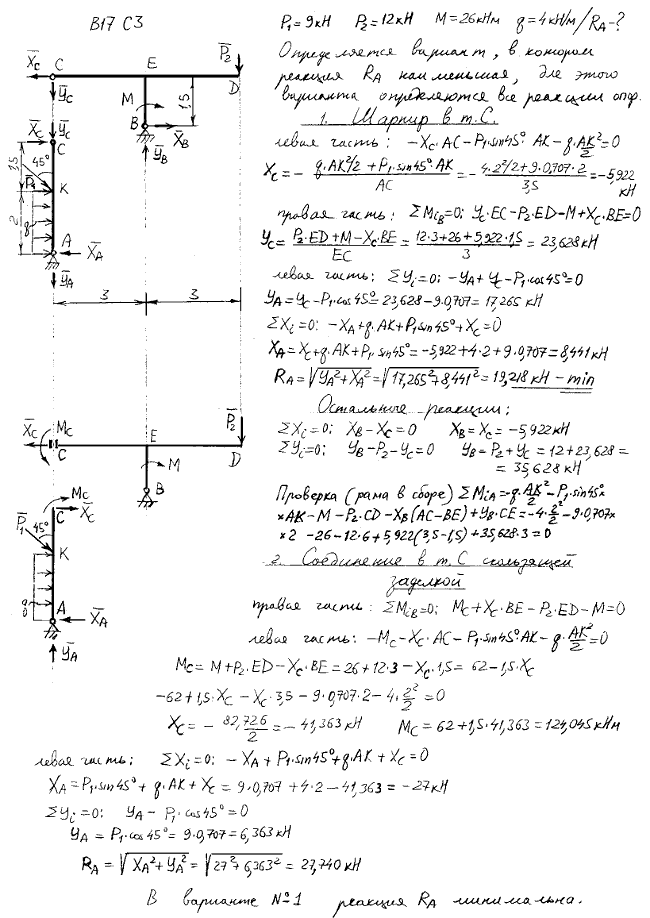 В17 С3
P₁ = 9кН P₂ = 12кН M = 26кНм q = 4кН/м / R_A - ?
Определяется вариант, в котором
реакция R_A наименьшая, для этого
варианта определяются все реакции опор.
1. Шарнир в т. С.
левая часть: -X_C·AC - P₁·sin45°·AK - q·AK²/2 = 0
X_C = - (q·AK²/2 + P₁·sin45°·AK)/AC = - (4·2²/2 + 9·0,707·2)/3,5 = -5,922 кН
правая часть: ΣM_iB = 0; Y_C·EC - P₂·ED - M + X_C·BE = 0
Y_C = (P₂·ED + M - X_C·BE)/EC = (12·3 + 26 + 5,922·1,5)/3 = 23,628 кН
левая часть: ΣY_i = 0; -Y_A + Y_C - P₁·cos45° = 0
Y_A = Y_C - P₁·cos45° = 23,628 - 9·0,707 = 17,265 кН
ΣX_i = 0: -X_A + q·AK + P₁·sin45° + X_C = 0
X_A = X_C + q·AK + P₁·sin45° = -5,922 + 4·2 + 9·0,707 = 8,441 кН
R_A = √(Y_A² + X_A²) = √(17,265² + 8,441²) = 19,218 кН - min
Остальные реакции:
ΣX_i = 0; X_B - X_C = 0 X_B = X_C = -5,922 кН
ΣY_i = 0; Y_B - P₂ - Y_C = 0 Y_B = P₂ + Y_C = 12 + 23,628 =
= 35,628 кН
Проверка (рама в сборе) ΣM_iA = -q·AK²/2 - P₁·sin45°×
×AK - M - P₂·CD - X_B(AC - BE) + Y_B·CE = -4·2²/2 - 9·0,707×
×2 - 26 - 12·6 + 5,922(3,5 - 1,5) + 35,628·3 = 0
2. Соединение в т. С скользящей
заделкой
правая часть: ΣM_iB = 0; M_C + X_C·BE - P₂·ED - M = 0
левая часть: -M_C - X_C·AC - P₁·sin45°·AK - q·AK²/2 = 0
M_C = M + P₂·ED - X_C·BE = 26 + 12·3 - X_C·1,5 = 62 - 1,5·X_C
-62 + 1,5·X_C - X_C·3,5 - 9·0,707·2 - 4·2²/2 = 0
X_C = - 82,726/2 = -41,363 кН M_C = 62 + 1,5·41,363 = 124,045 кНм
левая часть: ΣX_i = 0; -X_A + P₁·sin45° + q·AK + X_C = 0
X_A = P₁·sin45° + q·AK + X_C = 9·0,707 + 4·2 - 41,363 = -27 кН
ΣY_i = 0: Y_A - P₁·cos45° = 0
Y_A = P₁·cos45° = 9·0,707 = 6,363 кН
R_A = √(X_A² + Y_A²) = √(27² + 6,363²) = 27,740 кН
В варианте №1 реакция R_A минимальна.
X̄_C C E P̄₂
Ȳ_C M 1,5 D
B X̄_B
Ȳ_B
X̄_C Ȳ_C
C
1,5 45°
P̄₁ K
2 q
A X̄_A
Ȳ_A
3 3
M_C P̄₂
X̄_C C E D
M
B
M_C
C X̄_C
P̄₁ 45°
K
q A X̄_A
Ȳ_A